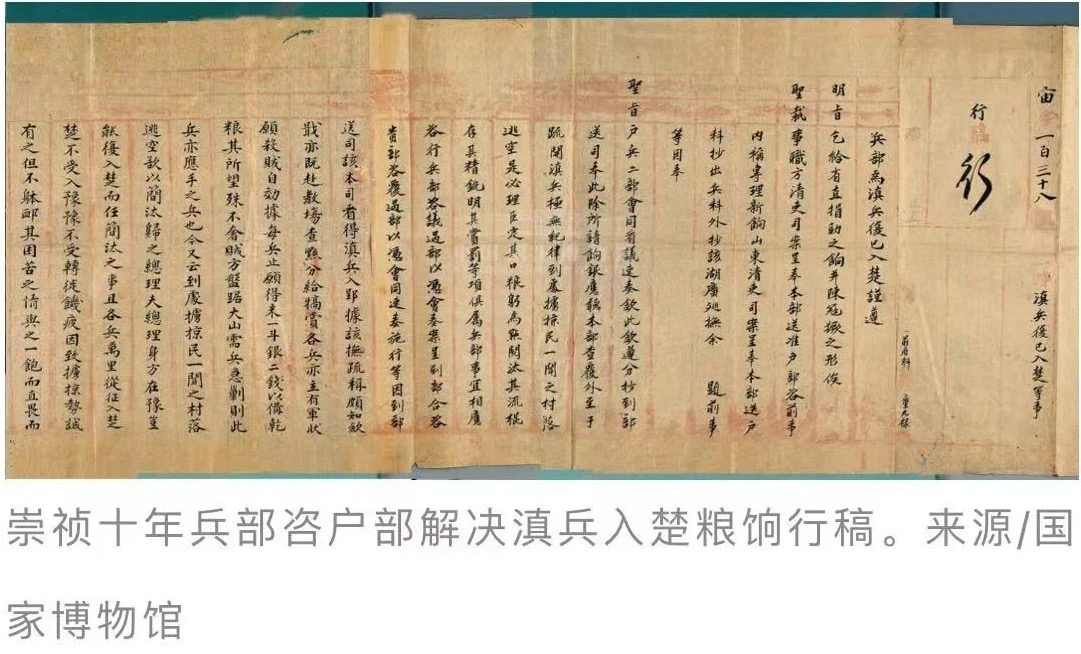 宙
一百三十八
滇兵復已入楚等事
行稿
行
兵部為滇兵復已入楚謹遵
明旨乞給省直捐助之餉并陳寇掠之形俟
聖裁事職方清吏司案呈奉本部送准户部咨前事
內稱專理新餉山東清吏司案呈奉本部送户
科抄出兵科外抄該湖廣巡撫余 題前事
等因奉
聖旨户兵二部會同看議速奏欽此欽遵分抄到部
送司奉此除所請餉銀應聽本部查覆外至于
疏開滇兵極無紀律到處擄掠民一聞之村落
逃空是必理臣定其口粮躬為點閱汰其流棍
存其精銳明其賞罰等項俱属兵部事宜相應
咨行兵部咨議過部以憑會奏案呈到部合咨
貴部咨覆過部以憑會同速奏施行等因到部
送司該本司看得滇兵入郢據該撫疏稱頗知歛
戢亦既赴教塲查點分給犒賞各兵亦立有軍狀
願殺賊自効據每兵止願得米一斗銀二錢以備乾
粮其所望殊不奢賊方盤踞大山需兵急剿則此
兵亦應手之兵也今又云到處擄掠民一聞之村落
逃空欲以簡汰歸之總理夫總理身方在豫豈
能復入楚而任簡汰之事且各兵萬里從征入楚
楚不受入豫豫不受轉徙饑疲因致擄掠勢誠
有之但不躰邮其困苦之情與之一飽而直畏而
崇祯十年兵部咨户部解决滇兵入楚粮饷行稿。来源/国
家博物馆